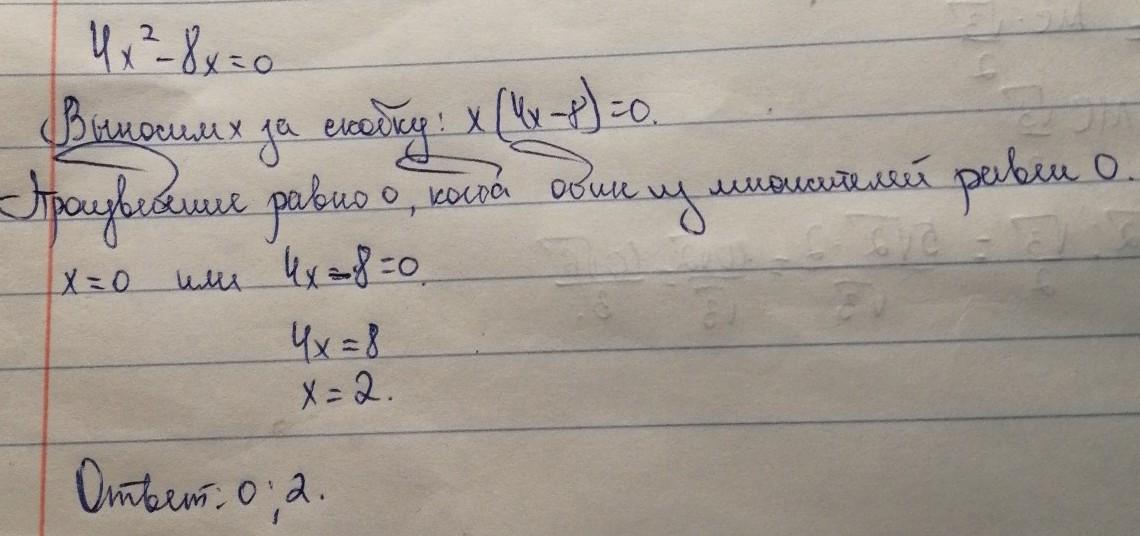 4x² - 8x = 0
Выносим x за скобку: x(4x - 8) = 0.
Произведение равно 0, когда один из множителей равен 0.
x = 0 или 4x - 8 = 0.
4x = 8
x = 2.
Ответ: 0; 2.